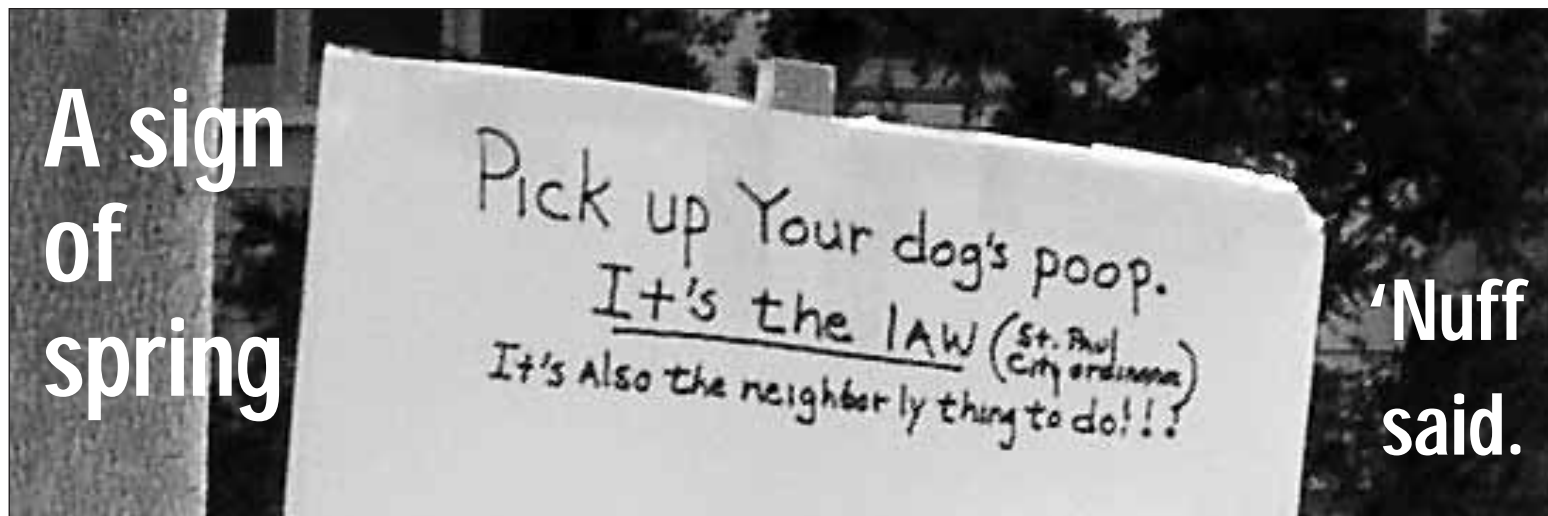 A sign
of
spring
Pick up Your dog's poop.
It's the lAW (St. Paul
City ordinance)
It's Also the neighborly thing to do!!!
‘Nuff
said.